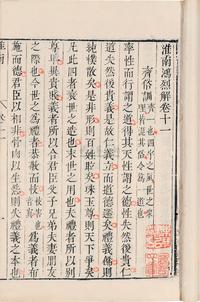 淮南鴻烈解卷十一
齊俗訓
率性而行謂之道得其天性謂之德性失然後貴仁
道失然後貴義是故仁義立而道德遷矣禮樂飾則
純樸散矣是非形則百姓眩矣珠玉尊則天下爭矣
凡此四者衰世之造也末世之用也夫禮者所以別
尊卑異貴賤義者所以合君臣父子兄弟夫妻朋友
之際也今世之為禮者恭敬而忮忮害也為義者布
施而德君臣以相非骨肉以生怨則失禮義之本也